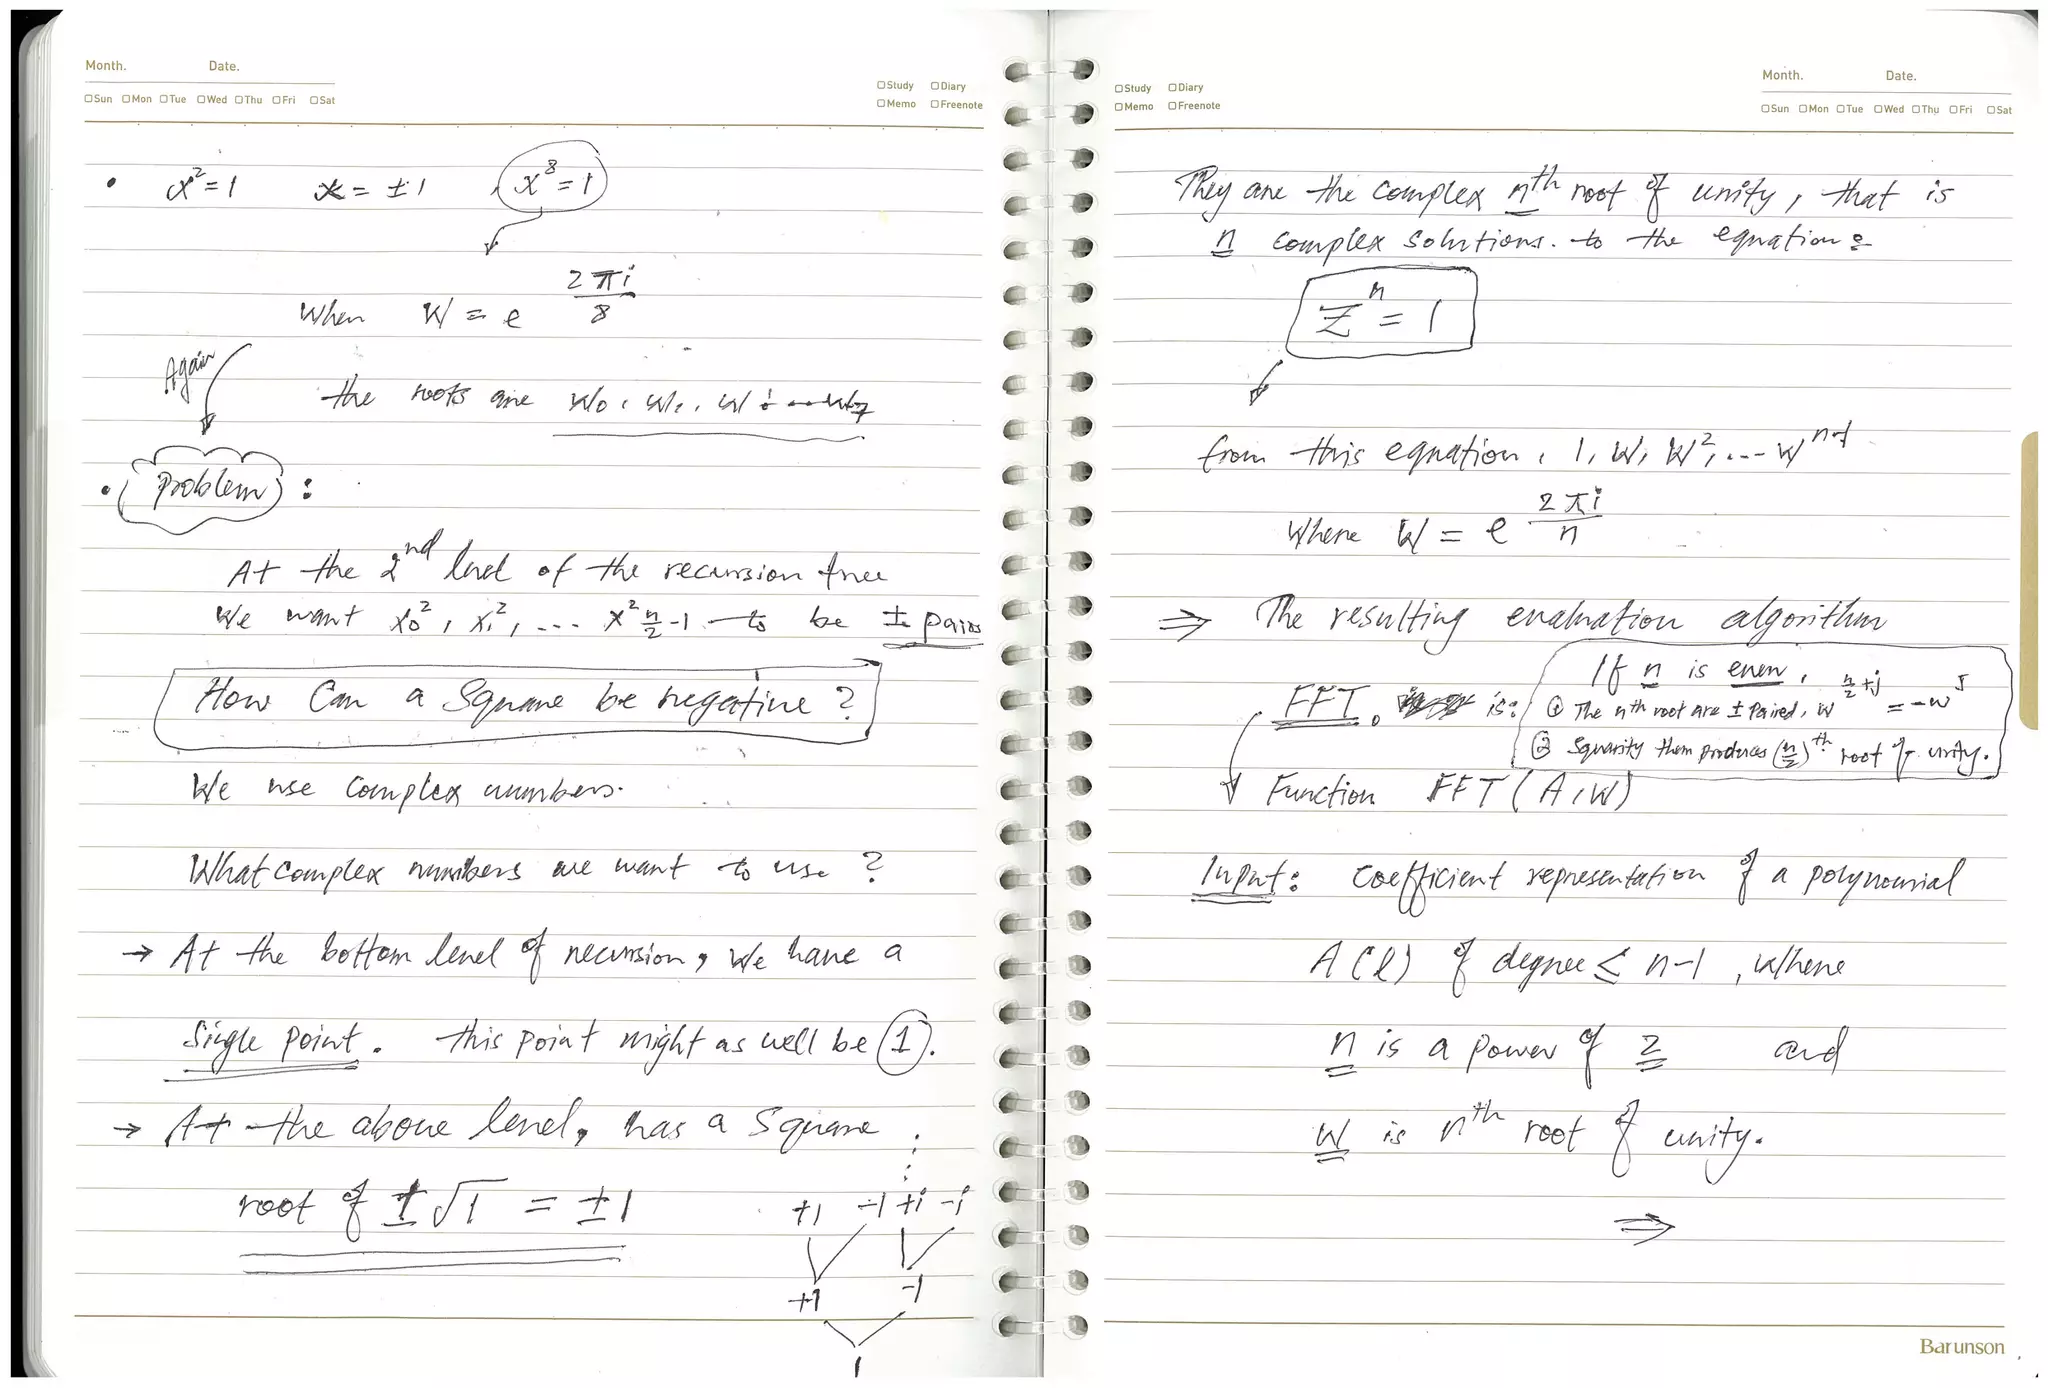 Month. Date.
□Sun □Mon □Tue □Wed □Thu □Fri □Sat
□Study □Diary
□Memo □Freenote
• x²=1 x = ±1 x⁸=1
When W = e^(2πi/8)
Again
the roots are
• Problem :
At the 2nd level of the recursion tree
We want x₀², x₁², ... x² n/2 -1 to be ± pairs
How Can a Square be negative ?
We use Complex numbers.
What complex numbers we want to use ?
→ At the bottom level of recursion, We have a
Single point. this point might as well be 1.
→ At the above level, has a Square
root of ±√1 = ±1
+1 -1 +i -i
+1 -1
1
□Study □Diary
□Memo □Freenote
Month. Date.
□Sun □Mon □Tue □Wed □Thu □Fri □Sat
They are the complex nth root of unity, that is
n complex solutions. to the equation :
Zⁿ = 1
from this equation, 1, W, W², ... Wⁿ⁻¹
Where W = e^(2πi/n)
⇒ The resulting evaluation algorithm
FFT. is:
If n is even,
① The nth root are ± Paired, W^(n/2+j) = -W^j
② Squarity them produces (n/2)th root of unity.
Function FFT (A, W)
Input: Coefficient representation of a polynomial
A(x) of degree ≤ n-1, Where
n is a power of 2 and
W is nth root of unity.
⇒
Barunson